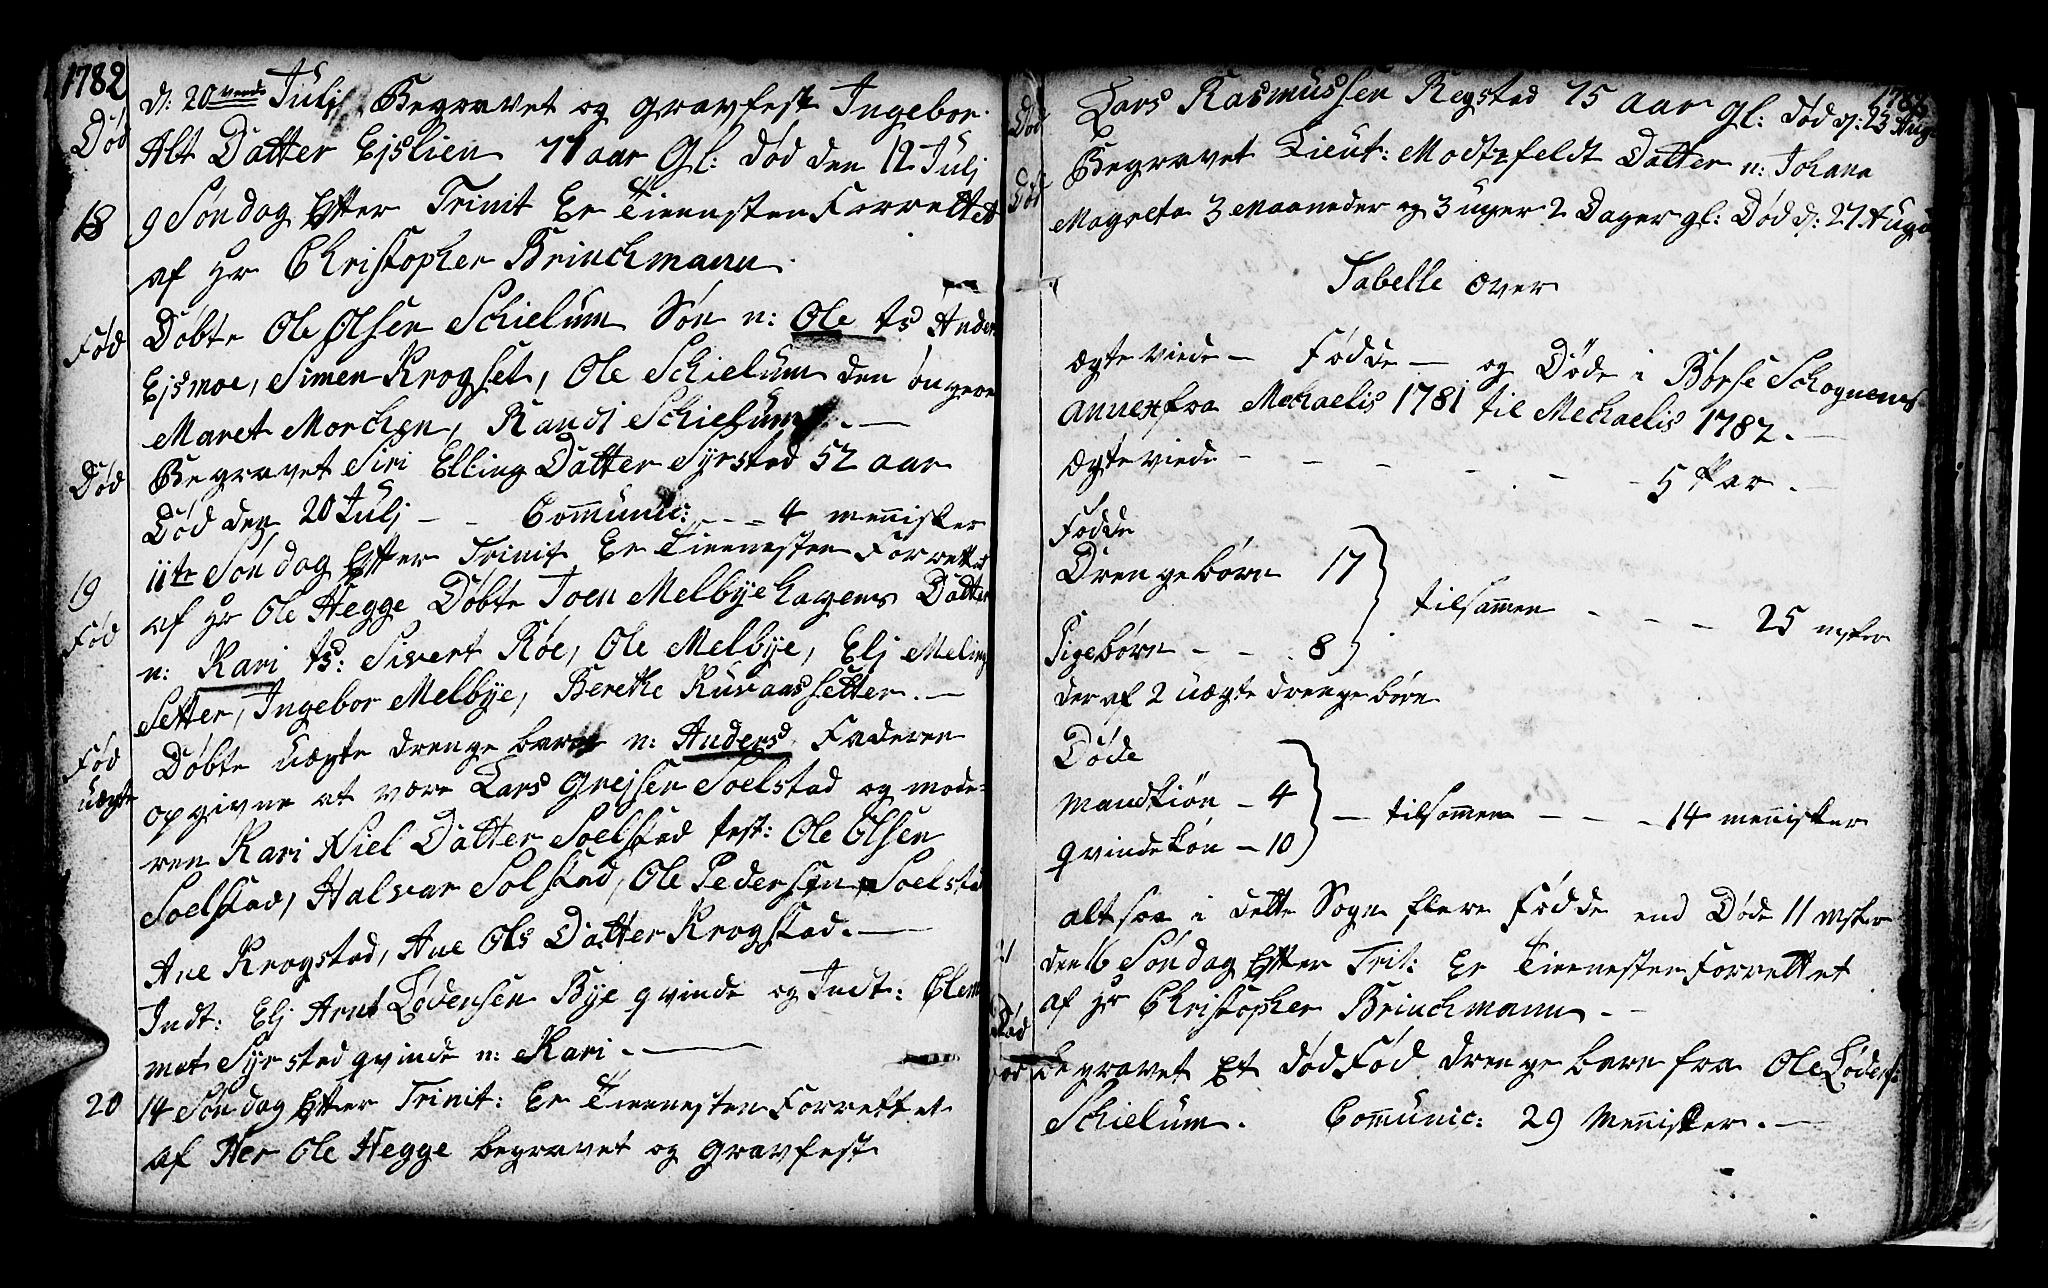 1782
d: 20vende Julj Begravet og gravfest Ingebor
Død
Alt Datter Ejslien 71 aar Gl: død den 12 Julj
18
9 Søndag Efter Trinit Er Tienesten Forrettet
af Hr Christopher Brinchmann
Død
Født
Døbte Ole Olsen Schielum Søn n: Ole ts Anders
Ejsmoe, Simen Krogset, Ole Schielum den öngere
Maret Morchen, Randi Schielum. —
Død
Begravet Siri Elling Datter Syrstad 52 aar
Død den 20 Julj - - Comunic: - - - 4 menisker
19
11te Søndag Efter Trinit Er Tienesten Forrettet
Fød
af Hr Ole Hegge Døbte Joen Melbyehagens Datter
n: Kari ts: Sivert Røe, Ole Melbye, Elj Meling
Setter, Ingebor Melbye, Berethe Kuvaassetter. —
Fød
uægte
Døbte Uægte drenge barn n: Anders Faderen
opgivne at være Lars Grejsen Soelstad og mode-
ren Kari Niel Datter Soelstad test: Ole Olsen
Soelstad, Halvar Solstad, Ole Pedersen Soelstad
Ane Krogstad, Ane Ols Datter Krogstad. —
Indt: Elj Arnt Lødensen Bye qvinde og Indt: Clem
met Syrsted qvinde n: Kari. —
20
14 Søndag Efter Trinit: Er Tienesten Forrettet
af Her Ole Hegge begravet og gravfest
1782
Død
Lars Rasmussen Regstad 75 aar gl: død d: 23 Aug
Død
Begravet Lieut: Modtzfeldt Datter n: Johana
Magreta 3 Maaneder og 3 uger 2 Dager gl: Død d: 27 Augu
Tabelle over
ægteviede — Fødde — og Døde i Børse Schognens
annex fra Mechaelis 1781 til Mechaelis 1782. —
ægteviede - - - - - - - 5 Par. —
Fødde
Drengebørn 17
tilsamen - - - - 25 msker
Pigebørn - - - 8
der af 2 uægte drengebørn
Døde
Mandkiøn - 4
— tilsamen - - - - 14 menisker
qvindekøn - 10
altsaa i dette Sogn flere fødde end Døde 11 msker
21
den 16 Søndag Efter Trit: Er Tienesten Forrettet
af Hr Christopher Brinchmann -
Død
begravet Et dødfød drenge barn fra Ole Lødens:
Schielum. Comunic: 29 Menisker. —